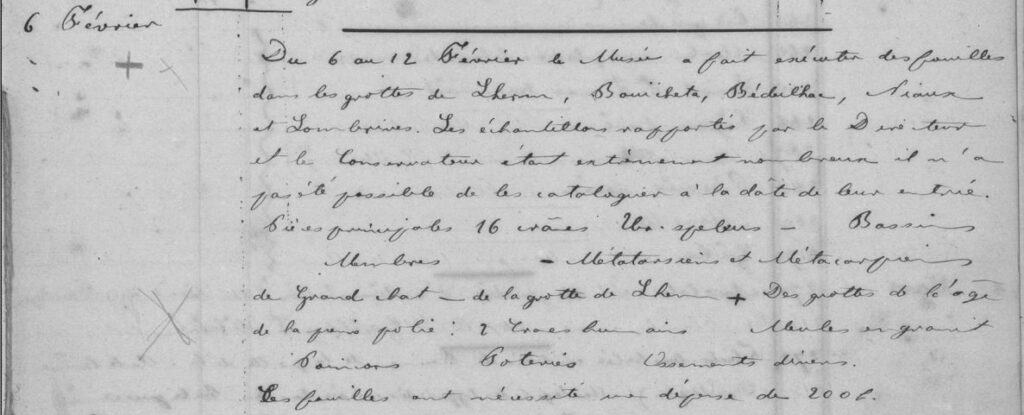 6 Février
Du 6 au 12 Février le Musée a fait exécuter des fouilles
dans les grottes de Lherm, Bouicheta, Bédeilhac, Niaux
et Lombrives. Les échantillons rapportés par le Directeur
et le Conservateur étant extrêmement nombreux il n'a
pas été possible de les cataloguer à la dâte de leur entrée.
Pièces principales 16 crânes Urs. spelæus - Bassins
Membres - Métatarsiens et Métacarpiens
de Grand chat - de la grotte de Lherm + Des grottes de l'âge
de la pierre polie : 2 humains Meules en granit
Poinçons Poteries Ossements divers.
Ces fouilles ont nécessité une dépense de 200 f.